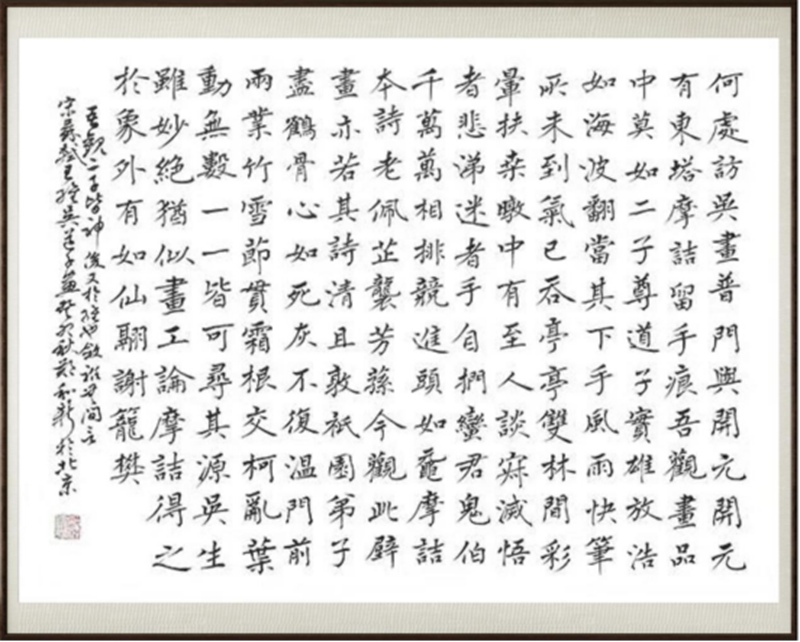 何處訪吳畫普門與開元開元
有東塔摩詰留手痕吾觀畫品
中莫如二子尊道子實雄放浩
如海波翻當其下手風雨快筆
所未到氣已吞亭亭雙林間彩
暈扶桑暾中有至人談寂滅悟
者悲涕迷者手自捫蠻君鬼伯
千萬萬相排競進頭如黿摩詰
本詩老佩芷襲芳蓀今觀此壁
畫亦若其詩清且敦祇園弟子
盡鶴骨心如死灰不復溫門前
兩叢竹雪節貫霜根交柯亂葉
動無數一一皆可尋其源吳生
雖妙絕猶似畫工論摩詰得之
於象外有如仙翮謝籠樊
吾觀二子皆神俊又於維也斂衽無間言
宋蘇軾王維吳道子畫秋鄭和新於北京